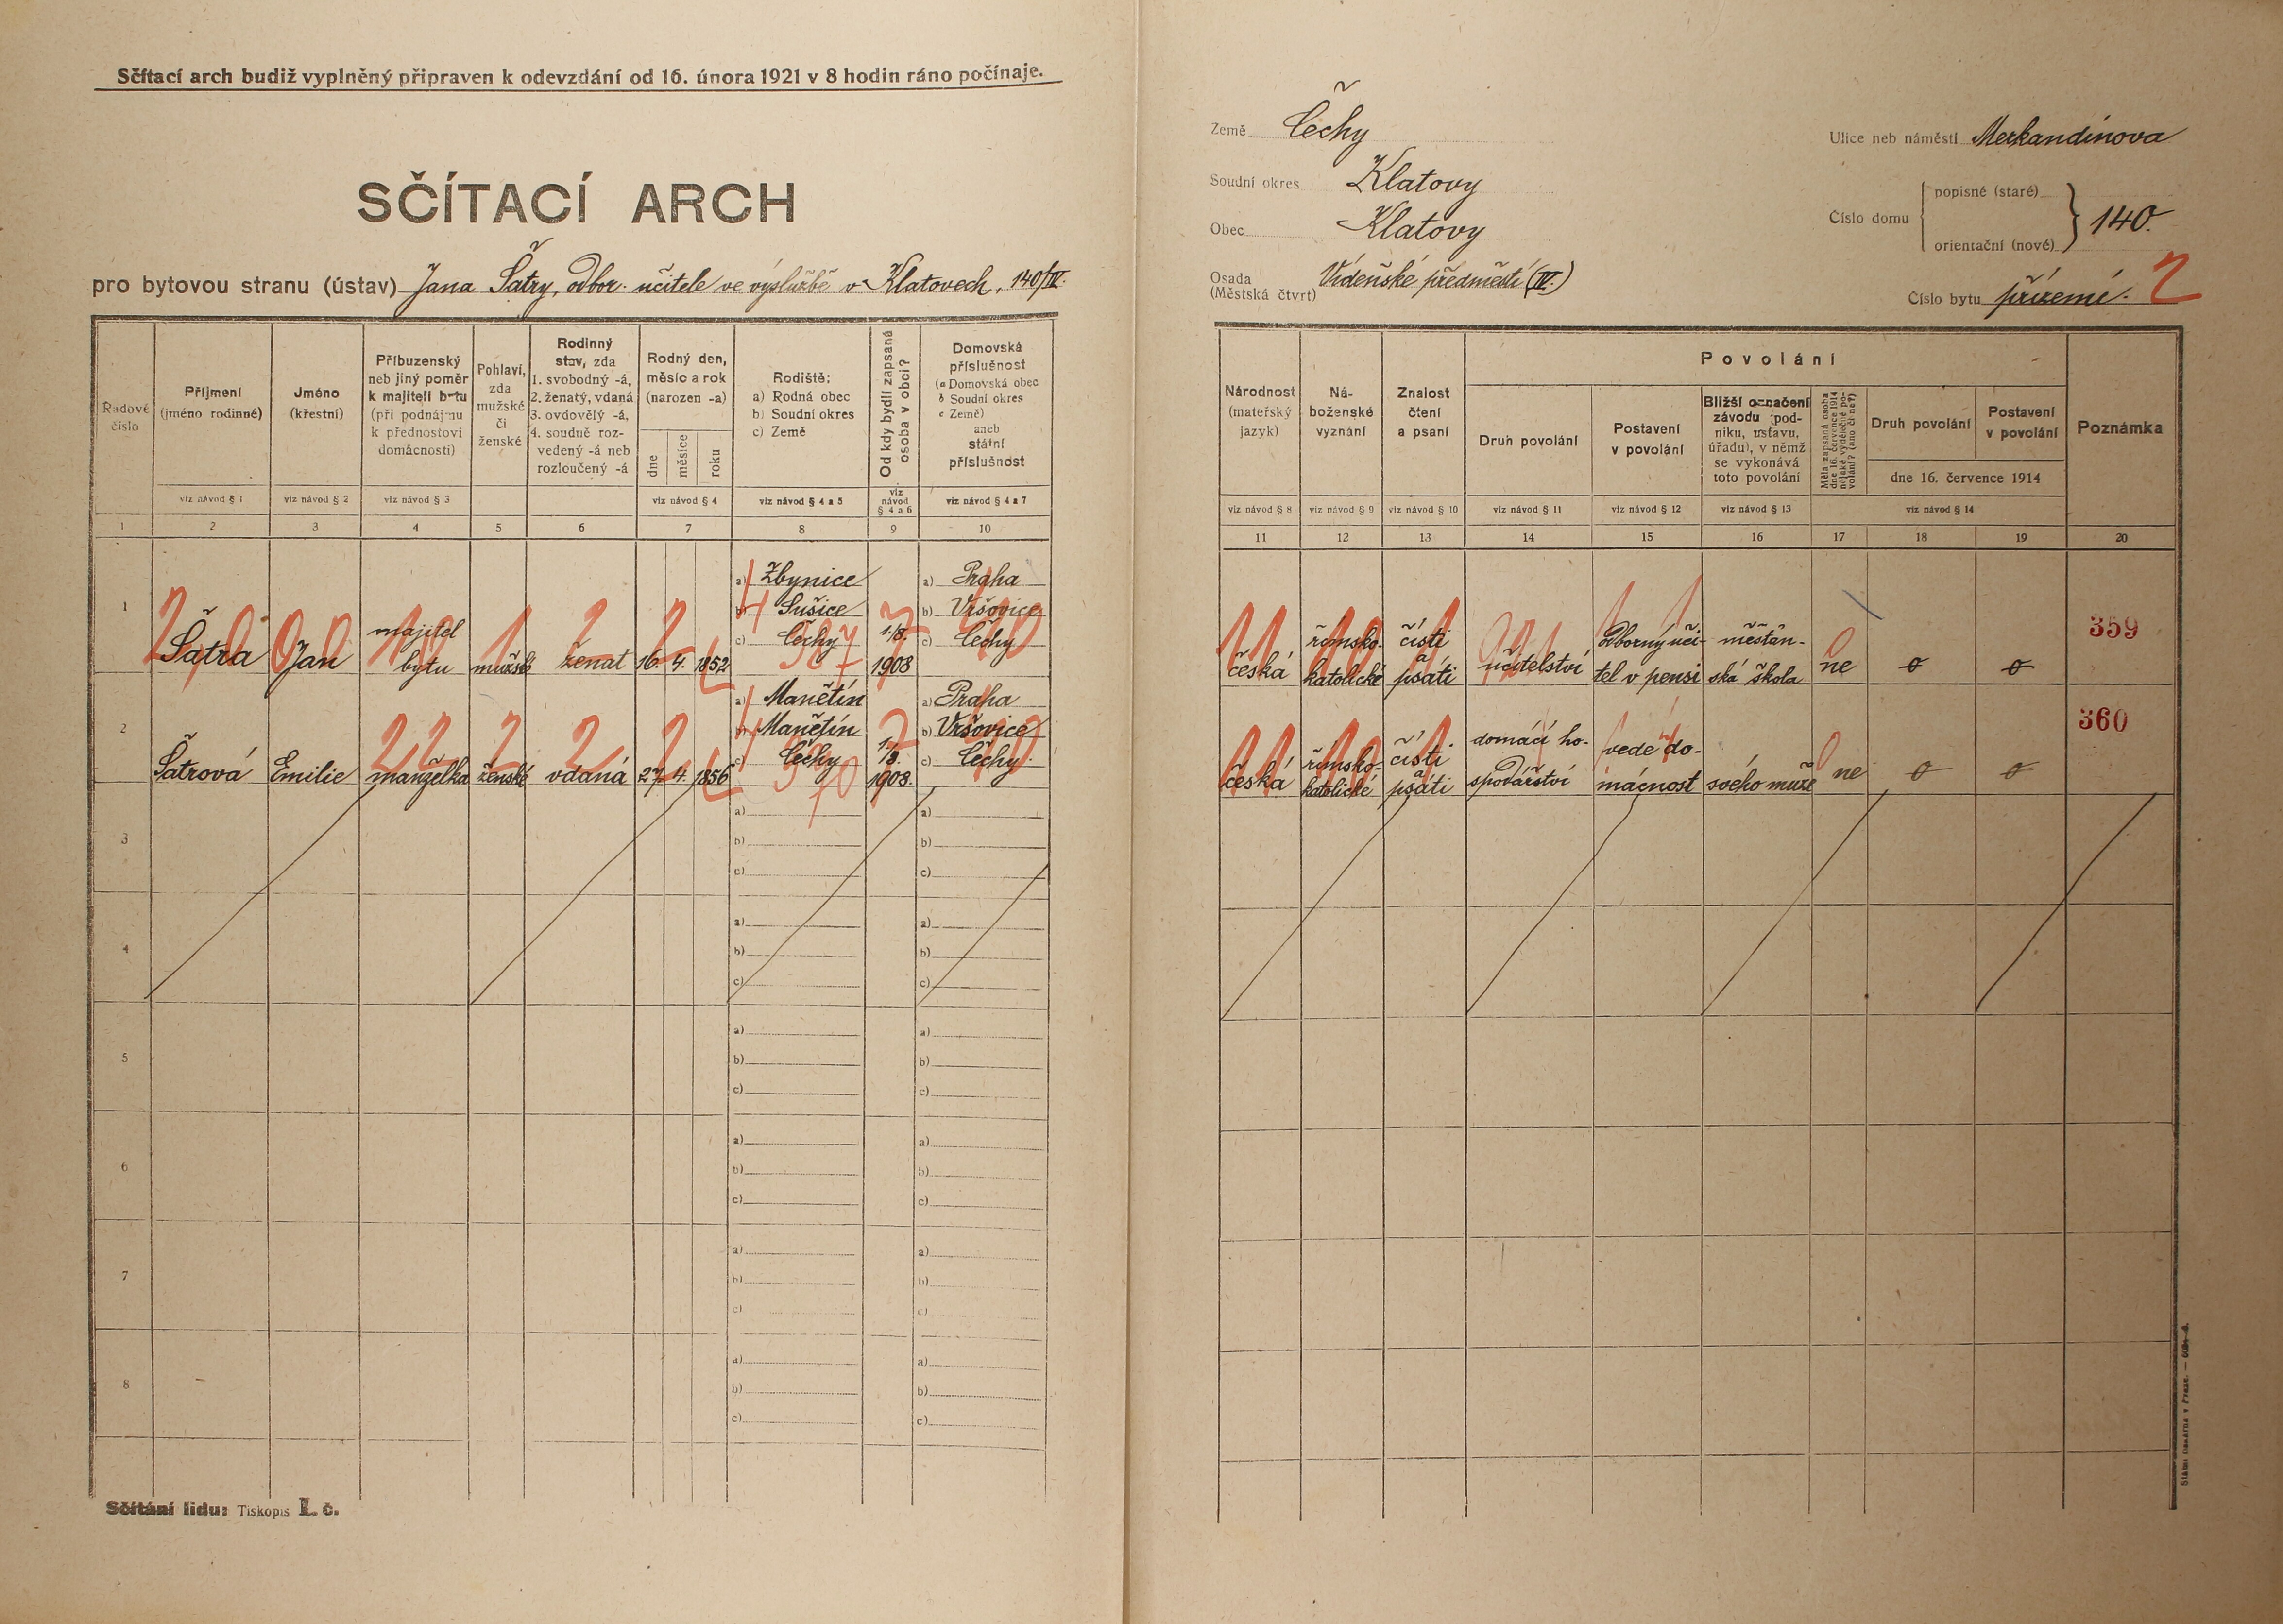 Sčítací arch budiž vyplněný připraven k odevzdání od 16. února 1921 v 8 hodin ráno počínaje.
SČÍTACÍ ARCH
pro bytovou stranu (ústav) Jana Šatry, odbor. učitele ve výslužbě v Klatovech, 140/IV.
Řadové číslo
Příjmení
(jméno rodinné)
viz návod § 1
Jméno
(křestní)
viz návod § 2
Příbuzenský
neb jiný poměr
k majiteli bytu
(při podnájmu
k přednostovi
domácnosti)
viz návod § 3
Pohlaví,
zda
mužské
či
ženské
Rodinný
stav, zda
1. svobodný -á,
2. ženatý, vdaná
3. ovdovělý -á,
4. soudně roz-
vedený -á neb
rozloučený -á
Rodný den,
měsíc a rok
(narozen -a)
dne
měsíce
roku
viz návod § 4
Rodiště:
a) Rodná obec
b) Soudní okres
c) Země
viz návod § 4 a 5
Od kdy bydlí zapsaná
osoba v obci?
viz
návod
§ 4 a 6
Domovská
příslušnost
(a Domovská obec
b Soudní okres
c Země)
aneb
státní
příslušnost
viz návod § 4 a 7
1 2 3 4 5 6 7 8 9 10
1
Šatra Jan majitel
bytu mužské ženat 16. 4. 1852
a) Zbynice
b) Sušice
c) Čechy
1./8.
1903
a) Praha
b) Vršovice
c) Čechy
2
Šatrová Emilie manželka ženské vdaná 27. 4. 1856
a) Manětín
b) Manětín
c) Čechy
1./8.
1903.
a) Praha
b) Vršovice
c) Čechy.
3
a) a)
b) b)
c) c)
4
a) a)
b) b)
c) c)
5
a) a)
b) b)
c) c)
6
a) a)
b) b)
c) c)
7
a) a)
b) b)
c) c)
8
a) a)
b) b)
c) c)
Sčítání lidu: Tiskopis I. č.
Země Čechy
Soudní okres Klatovy
Obec Klatovy
Osada
(Městská čtvrt) Vídeňské předměstí (IV.)
Ulice neb náměstí Merkandinova
Číslo domu
popisné (staré)
orientační (nové)
140.
Číslo bytu přízemí. 2
Národnost
(mateřský
jazyk)
viz návod § 8
Ná-
boženské
vyznání
viz návod § 9
Znalost
čtení
a psaní
viz návod § 10
Povolání
Druh povolání
viz návod § 11
Postavení
v povolání
viz návod § 12
Bližší označení
závodu (pod-
niku, ústavu,
úřadu), v němž
se vykonává
toto povolání
viz návod § 13
Měla zapsaná osoba
dne 16. července 1914
nějaké výdělečné po-
volání? (ano či ne?)
Druh povolání
Postavení
v povolání
dne 16. července 1914
viz návod § 14
Poznámka
11 12 13 14 15 16 17 18 19 20
česká
římsko-
katolické
čísti
a
psáti
učitelství
odborný uči-
tel v pensi
měšťan-
ská škola
ne
o
o
359
česká
římsko-
katolické
čísti
a
psáti
domácí ho-
spodářství
vede do-
mácnost
svého muže
ne
o
o
360